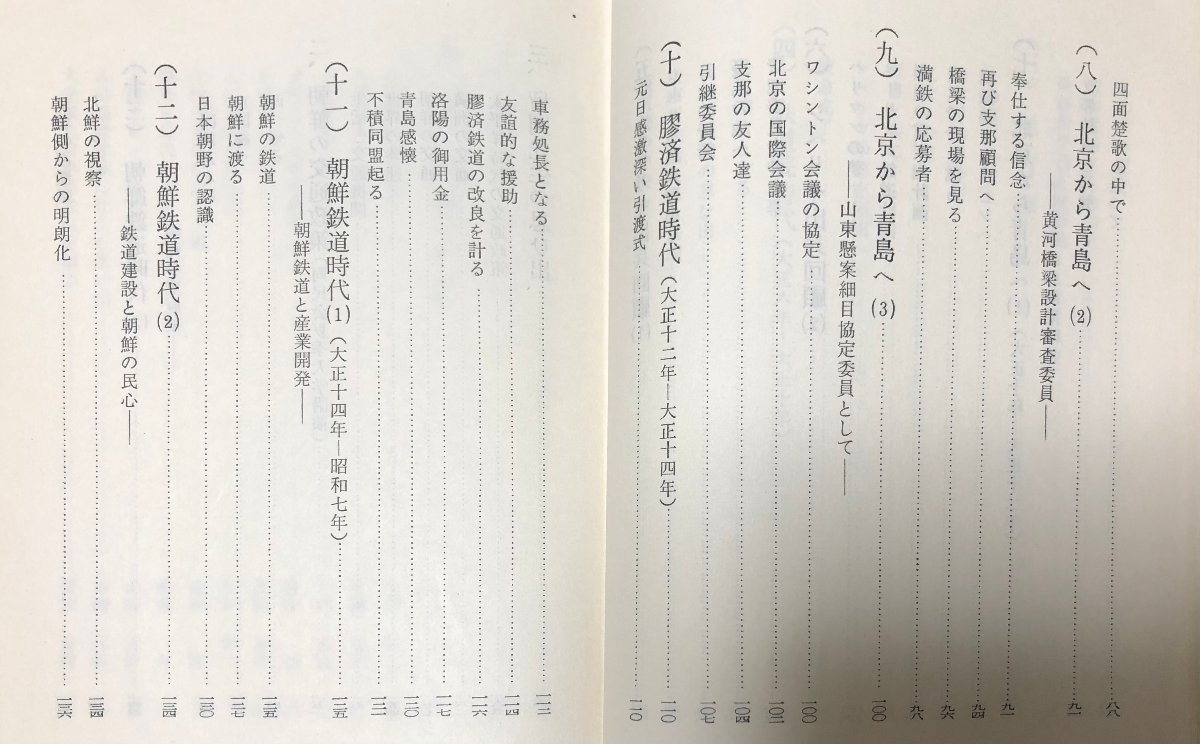 四面楚歌の中で……八八
(八) 北京から青島へ(2)……九一
――黄河橋梁設計審査委員――
奉仕する信念……九一
再び支那顧問へ……九四
橋梁の現場を見る……九六
満鉄の応募者……九八
(九) 北京から青島へ(3)……一〇〇
――山東懸案細目協定委員として――
ワシントン会議の協定……一〇〇
北京の国際会議……一〇二
支那の友人達……一〇四
引継委員会……一〇七
(十) 膠済鉄道時代(大正十二年―大正十四年)……一一〇
元日感激深い引渡式……一一〇
車務処長となる……一一二
友誼的な援助……一一四
膠済鉄道の改良を計る……一一六
洛陽の御用金……一一七
青島感懐……一二〇
不積同盟起る……一二一
(十一) 朝鮮鉄道時代(1)(大正十四年―昭和七年)……一二五
――朝鮮鉄道と産業開発――
朝鮮の鉄道……一二五
朝鮮に渡る……一二七
日本朝野の認識……一三〇
(十二) 朝鮮鉄道時代(2)……一三四
――鉄道建設と朝鮮の民心――
北鮮の視察……一三四
朝鮮側からの明朗化……一三六